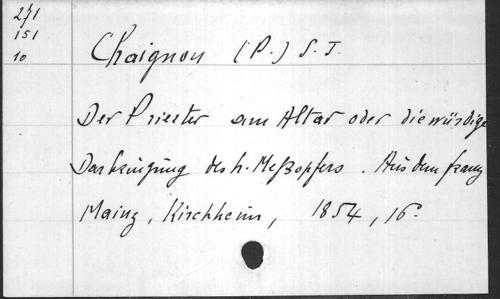 271
151
10
Chaignon (P.) S. J.
Der Priester am Altar oder die würdige
Darbringung des h. Meßopfers. Aus dem franz
Mainz, Kirchheim, 1854, 16°